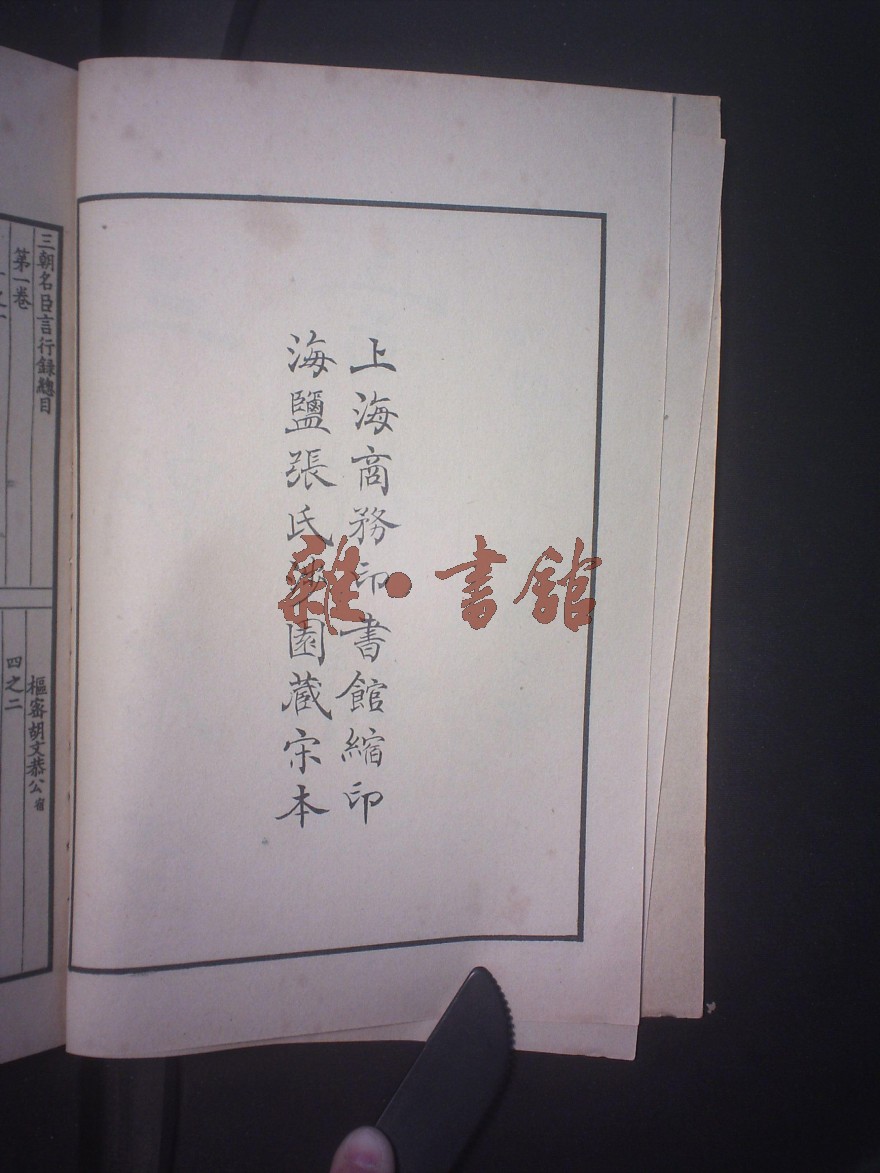 上海商務印書館縮印
海鹽張氏涉園藏宋本
雜·書館
三朝名臣言行錄總目
第一卷
樞密胡文恭公宿
四之二